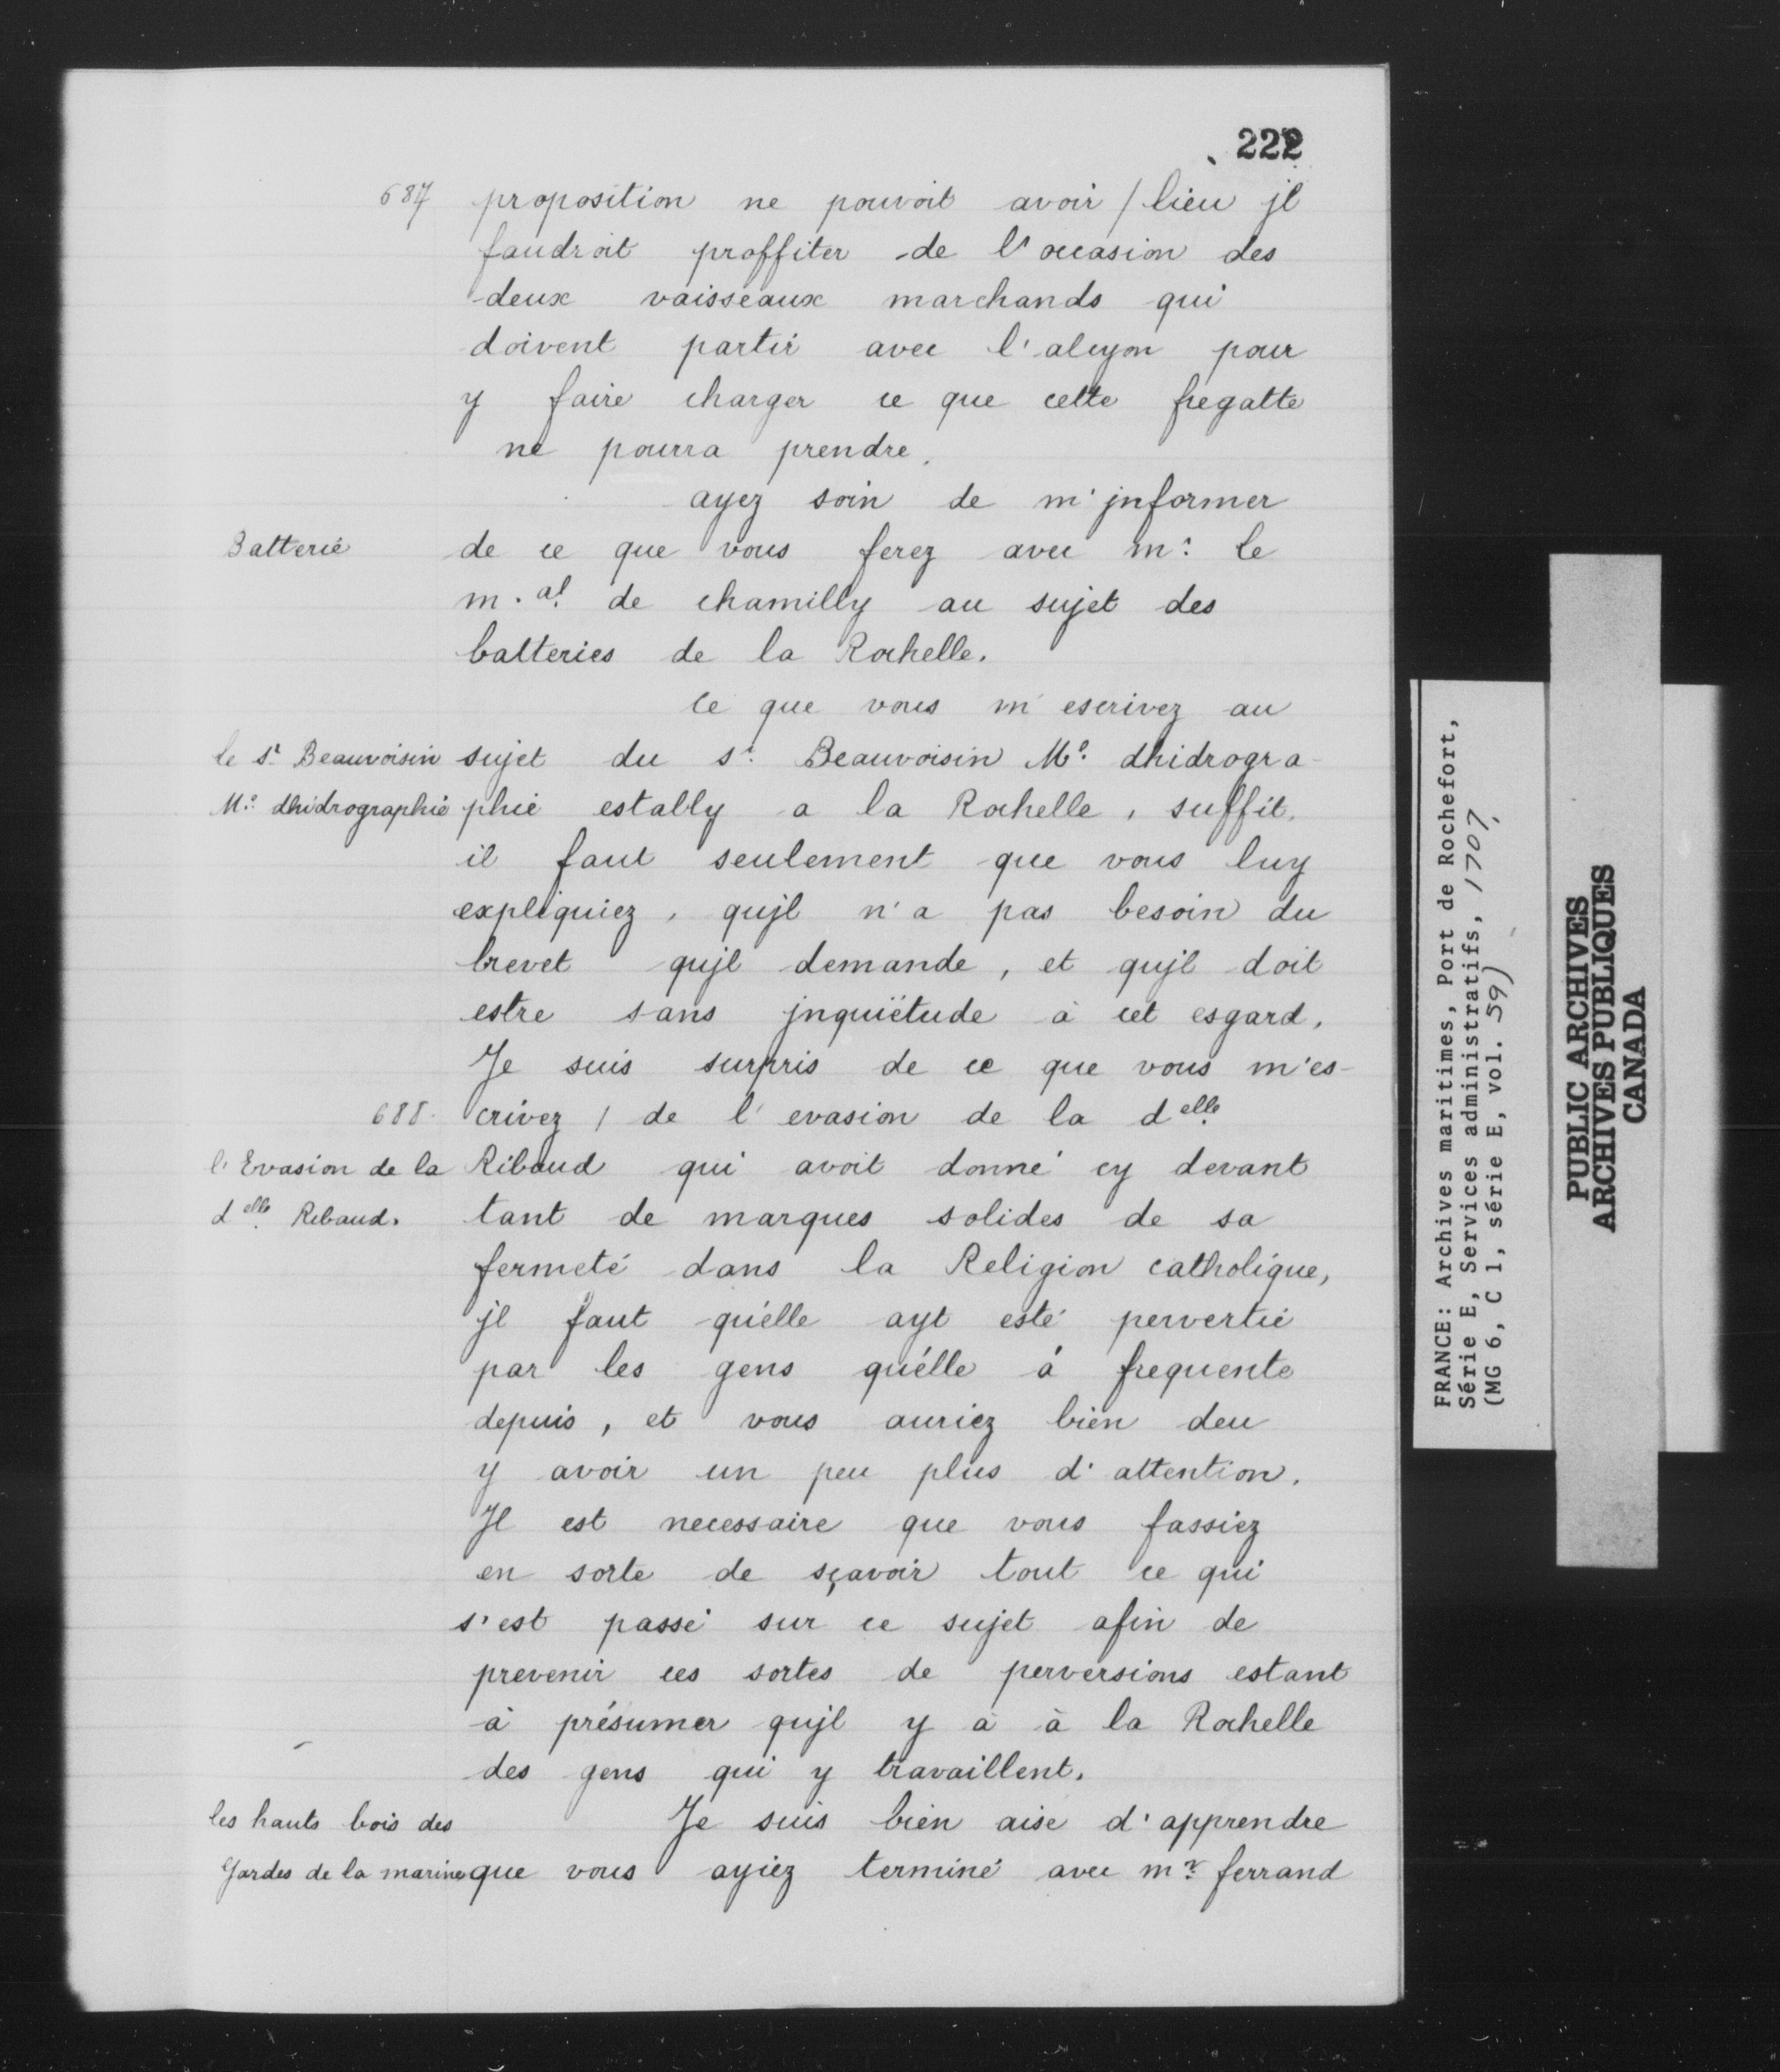 222
687 proposition ne pouvoit avoir / lieu jl
faudroit proffiter de l'occasion des
deux vaisseaux marchands qui
doivent partir avec l'alcyon pour
y faire charger ce que cette fregatte
ne pourra prendre.
ayez soin de m'jnformer
Batterie de ce que vous ferez avec mr. le
m.al. de chamilly au sujet des
batteries de la Rochelle.
ce que vous m'escrivez au
le sr. Beauvoisin sujet du sr. Beauvoisin Me. dhidrogra-
Me. dhidrographie phie estably a la Rochelle, suffit.
il faut seulement que vous luy
expliquiez, qujl n'a pas besoin du
brevet qujl demande, et qujl doit
estre sans jnquiëtude à cet esgard.
Je suis surpris de ce que vous m'es-
688. crivez / de l'evasion de la delle.
l'Evasion de la Ribaud qui avoit donné cy devant
delle. Ribaud. tant de marques solides de sa
fermeté dans la Religion catholique,
jl faut qu'elle ayt esté pervertie
par les gens qu'elle á frequente
depuis, et vous auriez bien deu
y avoir un peu plus d'attention.
Jl est necessaire que vous fassiez
en sorte de sçavoir tout ce qui
s'est passé sur ce sujet afin de
prevenir ces sortes de perversions estant
à présumer qujl y à à la Rochelle
des gens qui y travaillent.
les hauts bois des Je suis bien aise d'apprendre
Gardes de la marine que vous ayiez terminé avec mr. ferrand
FRANCE: Archives maritimes, Port de Rochefort,
Série E, Services administratifs, 1707,
(MG 6, C 1, série E, vol. 59)
PUBLIC ARCHIVES
ARCHIVES PUBLIQUES
CANADA